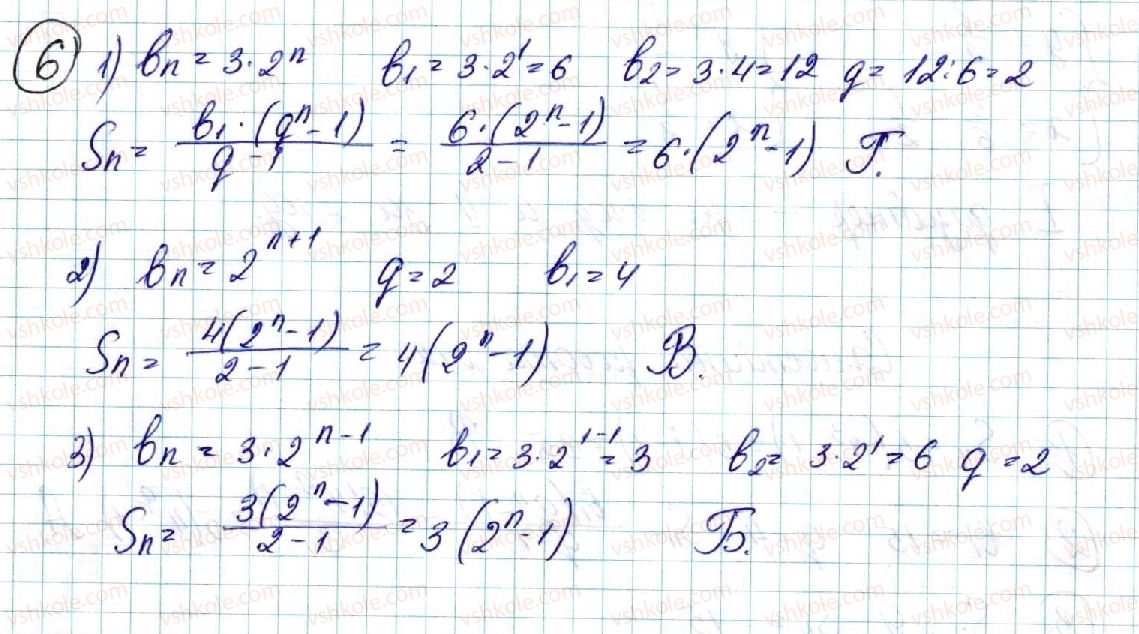 6 1) bn = 3·2ⁿ b₁ = 3·2¹ = 6 b₂ = 3·4 = 12 q = 12:6 = 2
Sn = b₁·(qⁿ-1)/(q-1) = 6·(2ⁿ-1)/(2-1) = 6·(2ⁿ-1) Г.
2) bn = 2ⁿ⁺¹ q = 2 b₁ = 4
Sn = 4(2ⁿ-1)/(2-1) = 4(2ⁿ-1) В.
3) bn = 3·2ⁿ⁻¹ b₁ = 3·2¹⁻¹ = 3 b₂ = 3·2¹ = 6 q = 2
Sn = 3(2ⁿ-1)/(2-1) = 3(2ⁿ-1) Б.